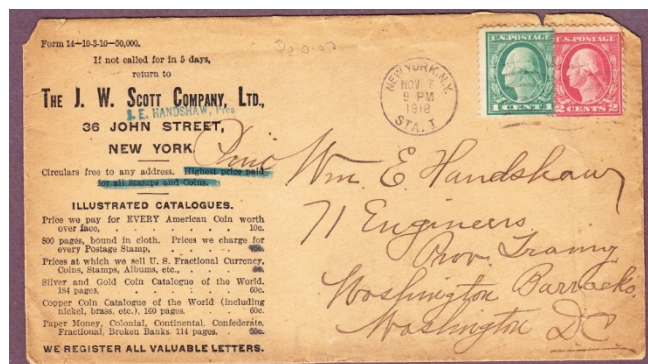 Form 14—10-3-10—50,000.
If not called for in 5 days,
return to
THE J. W. SCOTT COMPANY, LTD.,
J. E. HANDSHAW, Pres
36 JOHN STREET,
NEW YORK.
Circulars free to any address. Highest price paid
for all Stamps and Coins.
ILLUSTRATED CATALOGUES.
Price we pay for EVERY American Coin worth
over face, . . . . . . . 10c.
800 pages, bound in cloth. Prices we charge for
every Postage Stamp,
Prices at which we sell U. S. Fractional Currency,
Coins, Stamps, Albums, etc.,
Silver and Gold Coin Catalogue of the World.
184 pages, . . . . . . 60c.
Copper Coin Catalogue of the World (including
nickel, brass, etc.), 160 pages, . . 60c.
Paper Money, Colonial, Continental, Confederate,
Fractional, Broken Banks. 114 pages,
WE REGISTER ALL VALUABLE LETTERS.
NEW YORK, N.Y.
NOV 7
9 PM
1918
STA. I
U.S. POSTAGE
1 CENT 1
U.S. POSTAGE
2 CENTS 2
Wm E Handshaw
71 Engineers
Prov. Traing
Washington Barracks
Washington D.C.